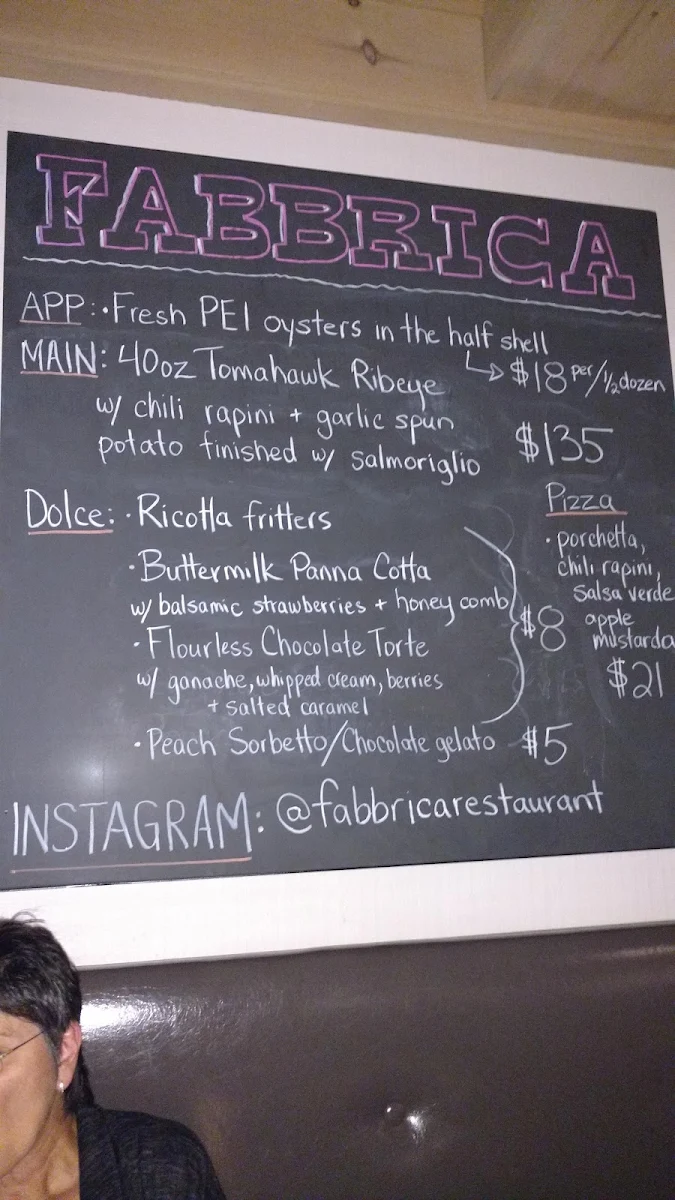 FABBRICA
APP: • Fresh PEI oysters in the half shell
$18 per/½ dozen
MAIN: 40oz Tomahawk Ribeye
w/ chili rapini + garlic spun
potato finished w/ salmoriglio
$135
Dolce: • Ricotta fritters
• Buttermilk Panna Cotta
w/ balsamic strawberries + honey comb
• Flourless Chocolate Torte
w/ ganache, whipped cream, berries
+ salted caramel
$8
• Peach Sorbetto/Chocolate gelato $5
Pizza
• porchetta,
chili rapini,
salsa verde
apple
mustarda
$21
INSTAGRAM: @fabbricarestaurant